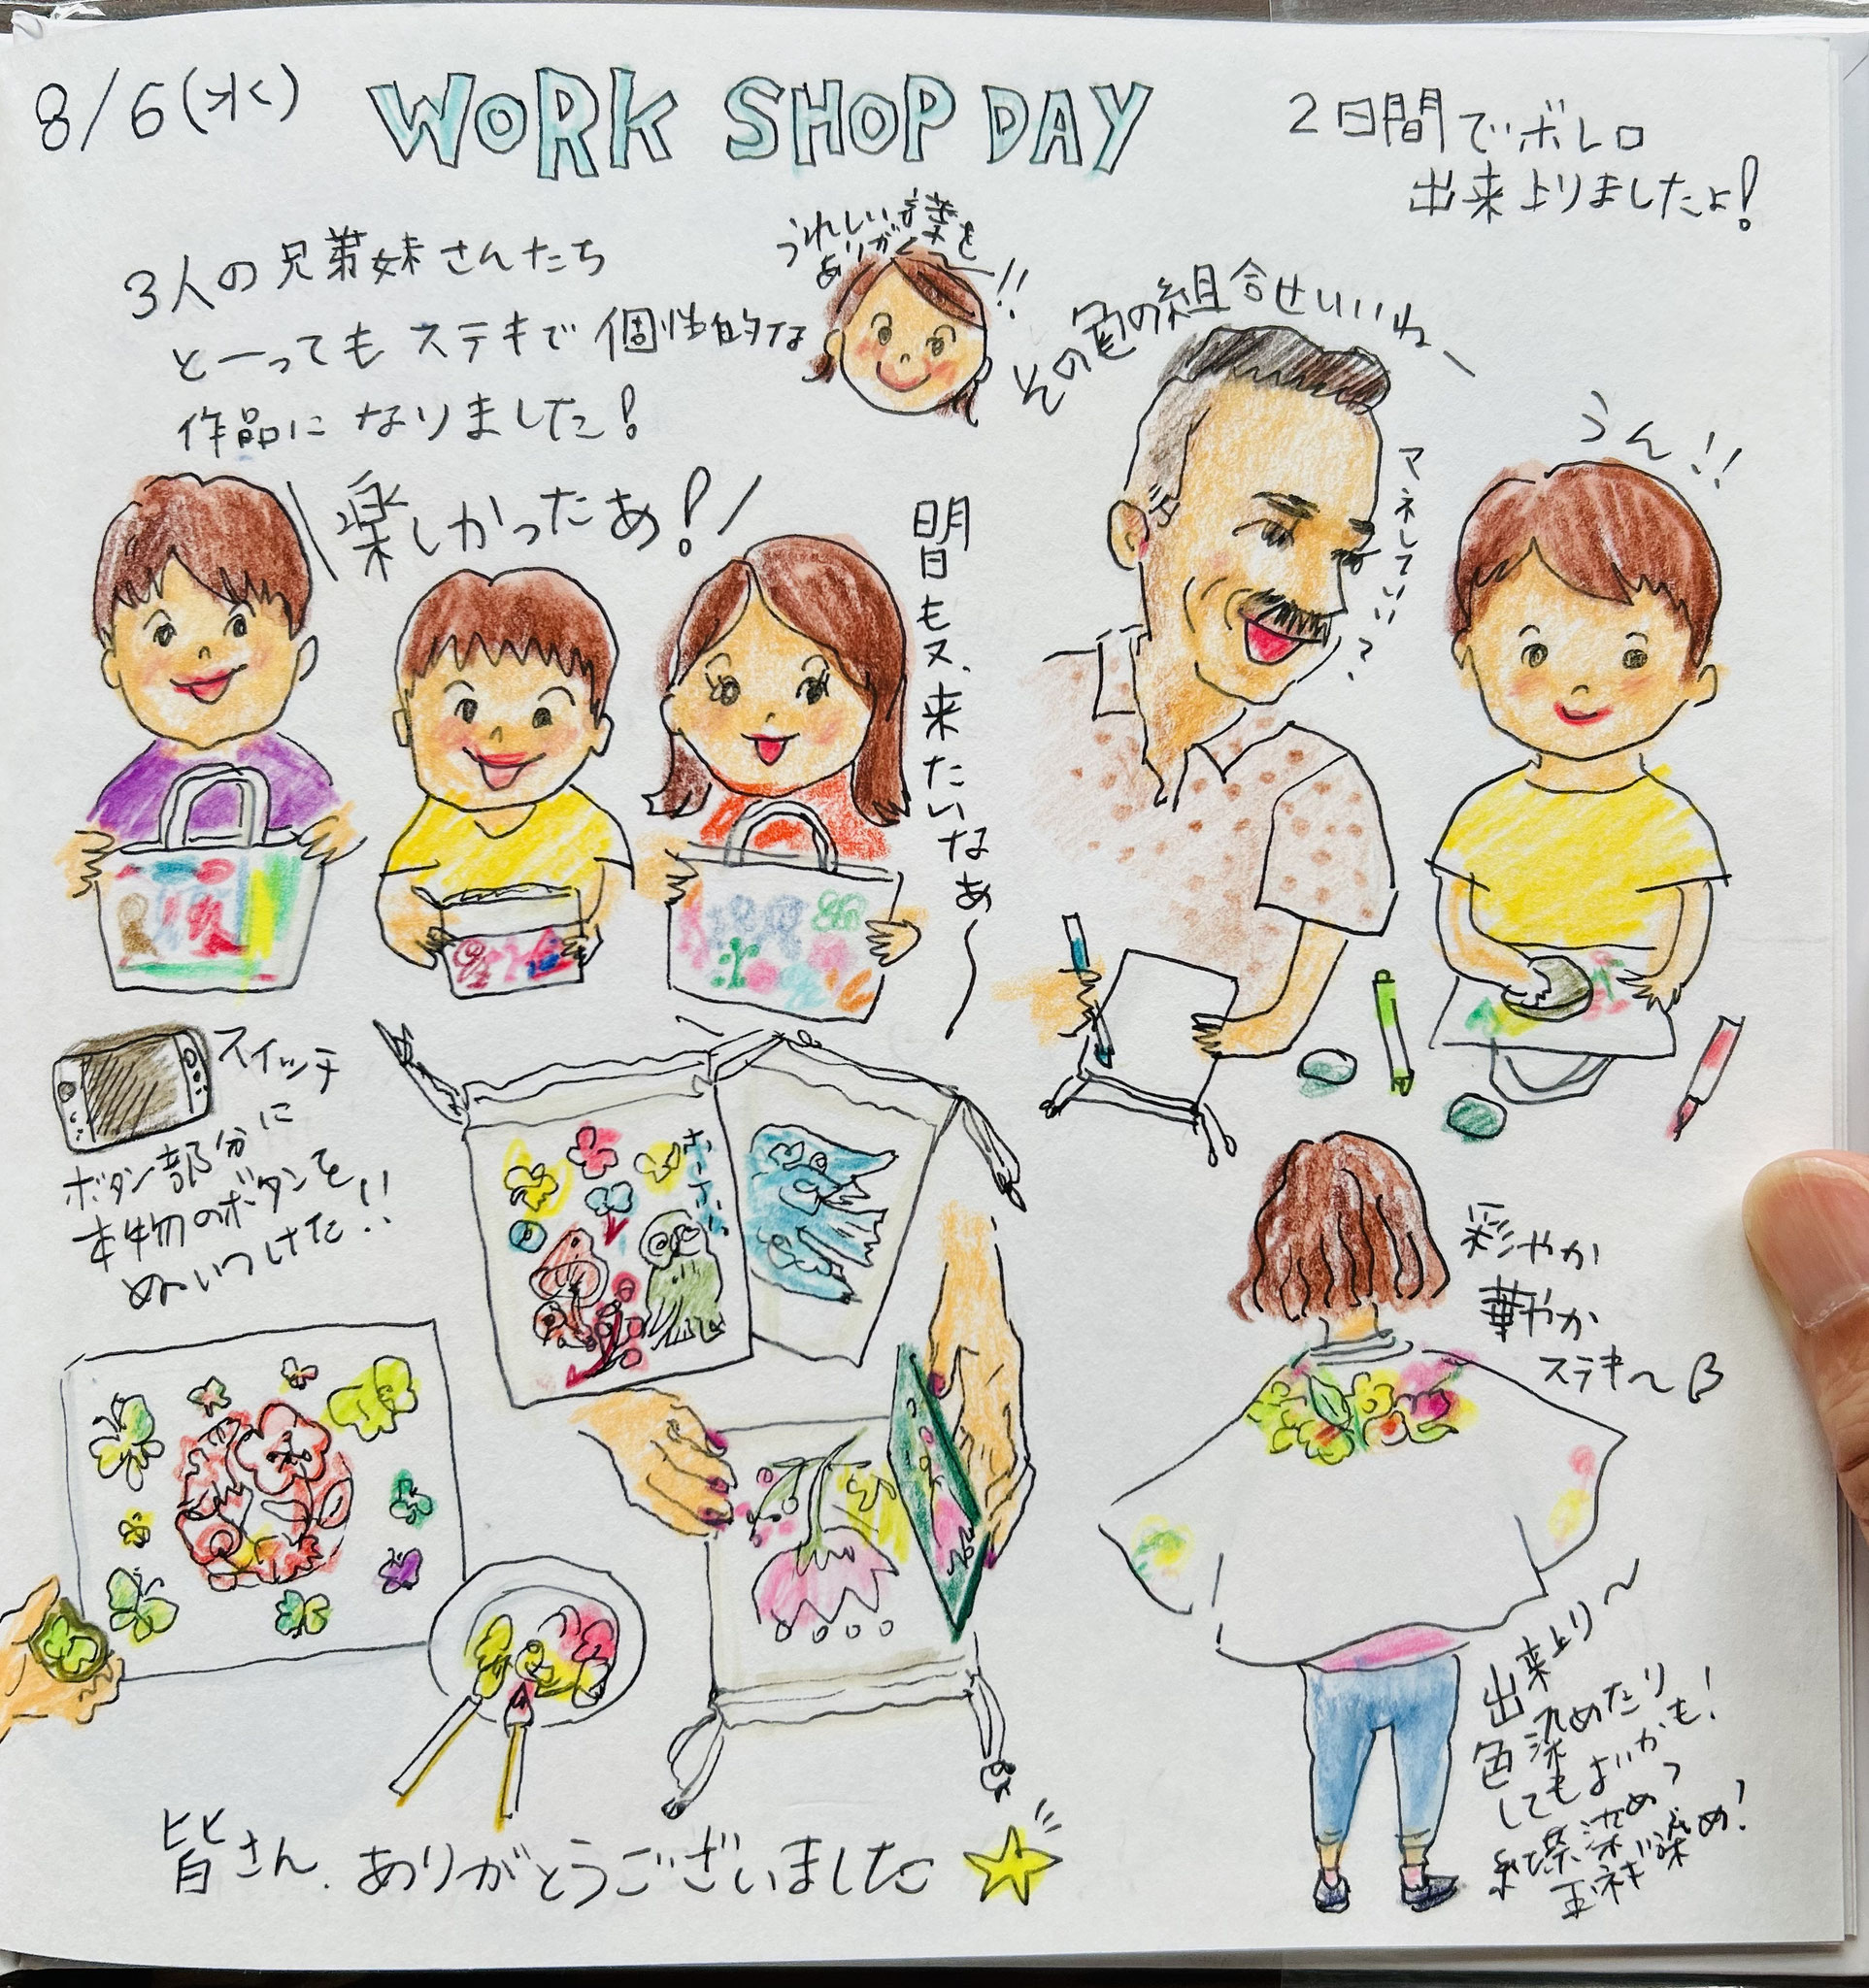 8/6(水)
WORK SHOP DAY
2日間でボレロ
出来上りましたよ!
3人の兄弟妹さんたち
とーってもステキで個性的な
作品になりました!
うれしい言葉を
ありがとー!!
楽しかったあ!
明日も又、来たいなあ〜
その色の組合せいいねー
マネしていい?
うん!!
スイッチ
ボタン部分に
本物のボタンを
ぬいつけた!!
彩やか
華やか
ステキ〜
出来上り〜
色染めたり
してもよいかも!
紅茶染め?
玉ネギ染め!
皆さん、ありがとうございました